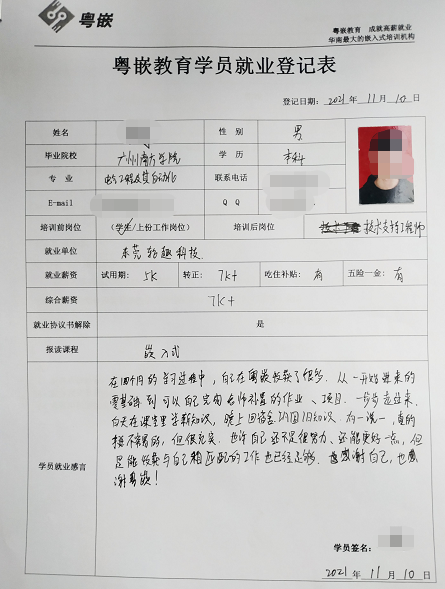 粤嵌
粤嵌教育 成就高薪就业
华南最大的嵌入式培训机构
粤嵌教育学员就业登记表
登记日期：2021 年 11 月 10 日
姓名 性 别 男
毕业院校 广州南方学院 学 历 本科
专 业 电气工程及其自动化 联系电话
E-mail Q Q
培训前岗位 (学生/上份工作岗位) 培训后岗位 技术支持工程师
就业单位 东莞 科技
就业薪资 试用期: 5K 转正: 7K+ 吃住补贴: 有 五险一金: 有
综合薪资 7K+
就业协议书解除 是
报读课程 嵌入式
学员就业感言
在四个月的学习过程中，自己在粤嵌收获了很多。从一开始原来的
零基础到可以自己完成老师布置的作业、项目，一步步走过来，
白天在课室里学新知识，晚上回宿舍巩固旧知识。有一说一，真的
很不容易，但很充实。也许自己还不是很努力，还能更好一点，但
是能收获与自己相匹配的工作也已经足够。感谢自己，也感
谢粤嵌！
学员签名：
2021 年 11 月 10 日